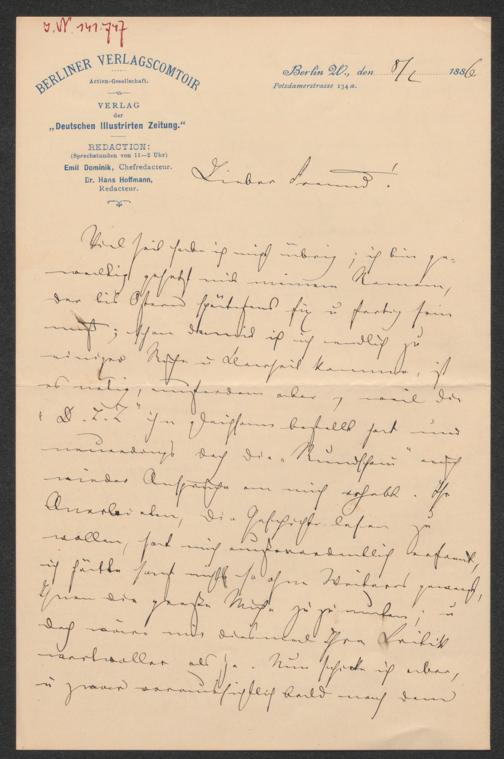 J. N. 141.747
BERLINER VERLAGSCOMTOIR
Actien-Gesellschaft.
VERLAG
der
„Deutschen Illustrirten Zeitung."
REDACTION:
(Sprechstunden von 11—2 Uhr)
Emil Dominik, Chefredacteur.
Dr. Hans Hoffmann,
Redacteur.
Berlin W., den 8/ 1886
Potsdamerstrasse 134 a.
Lieber Freund!
Viel Zeit habe ich nicht übrig; ich bin ge-
waltig gehetzt mit meinem Roman,
der bis Ostern spätestens fix u fertig sein
muß; schon damit ich endlich zu
einiger Ruhe u kommen, ist
es nötig, außerdem aber, weil die
„D. I. Z." ihn gleichsam bestellt hat und
neuerdings doch die „Rundschau" auch
wieder Ansprüche an mich erhebt. Ihr
Anerbieten, die Geschichte lesen zu
wollen, hat mich außerordentlich erfreut,
ich hätte sonst nicht so ohne Weiteres gewagt,
Ihnen die große Mühe zuzumuten; u
doch wäre mir diesmal Ihre Kritik
wertvoller als je. Nun schicke ich aber,
u zwar voraussichtlich bald nach dem